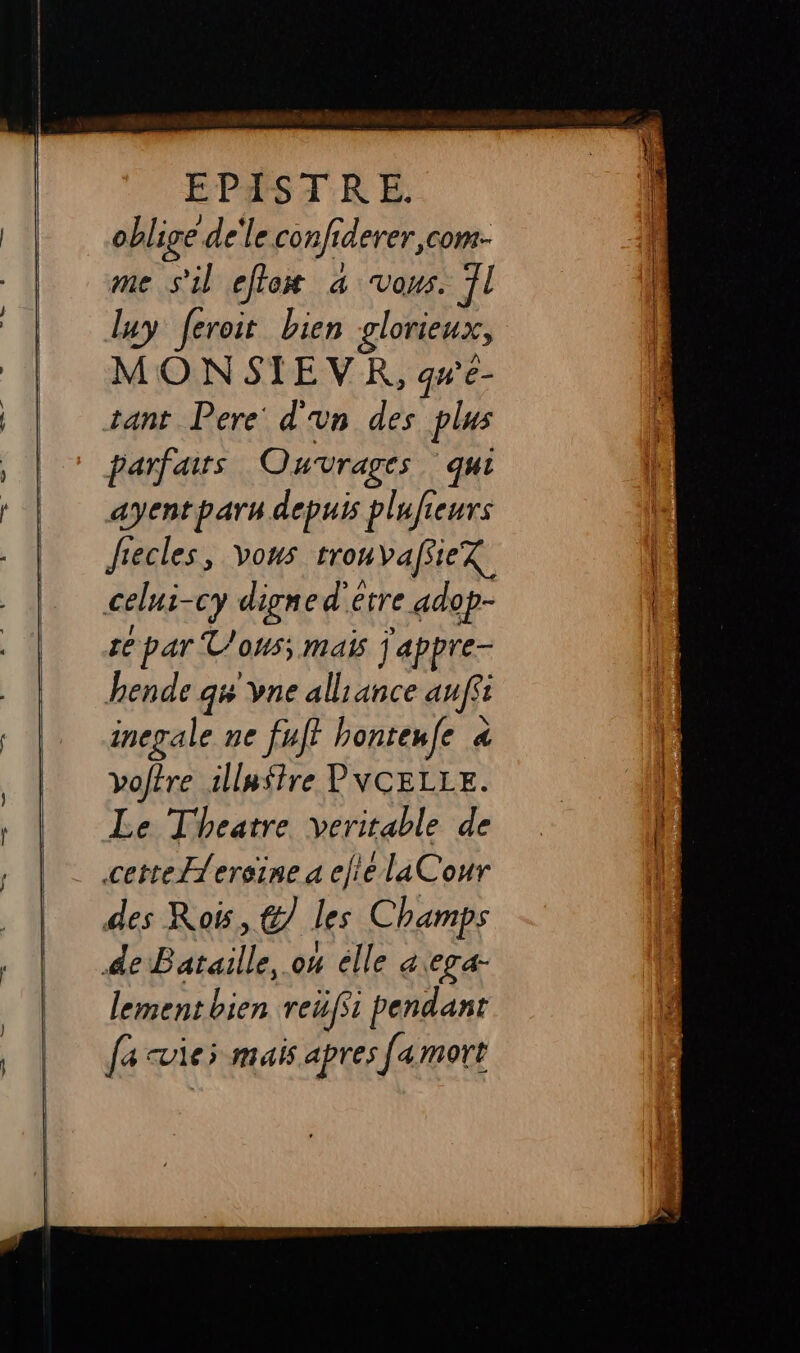 EPISTRE.
obligé de le conſiderer, com-
me s'il eſtoit à vous. Il
luy ſeroit bien glorieux,
MONSIEVR, qu'é-
tant Pere d'vn des plus
parfaits Ouvrages qui
ayent paru depuis pluſieurs
ſiecles, vous trouvaſſieZ
celui-cy digne d'être adop-
té par Vous; mais j'appre-
hende qu'vne alliance auſſi
inegale ne fuſt honteuſe à
voſtre illuſtre PVCELLE.
Le Theatre veritable de
cette Heroïne a eſté la Cour
des Rois, & les Champs
de Bataille, où elle a ega-
lement bien reüſſi pendant
ſa vie; mais apres ſa mort